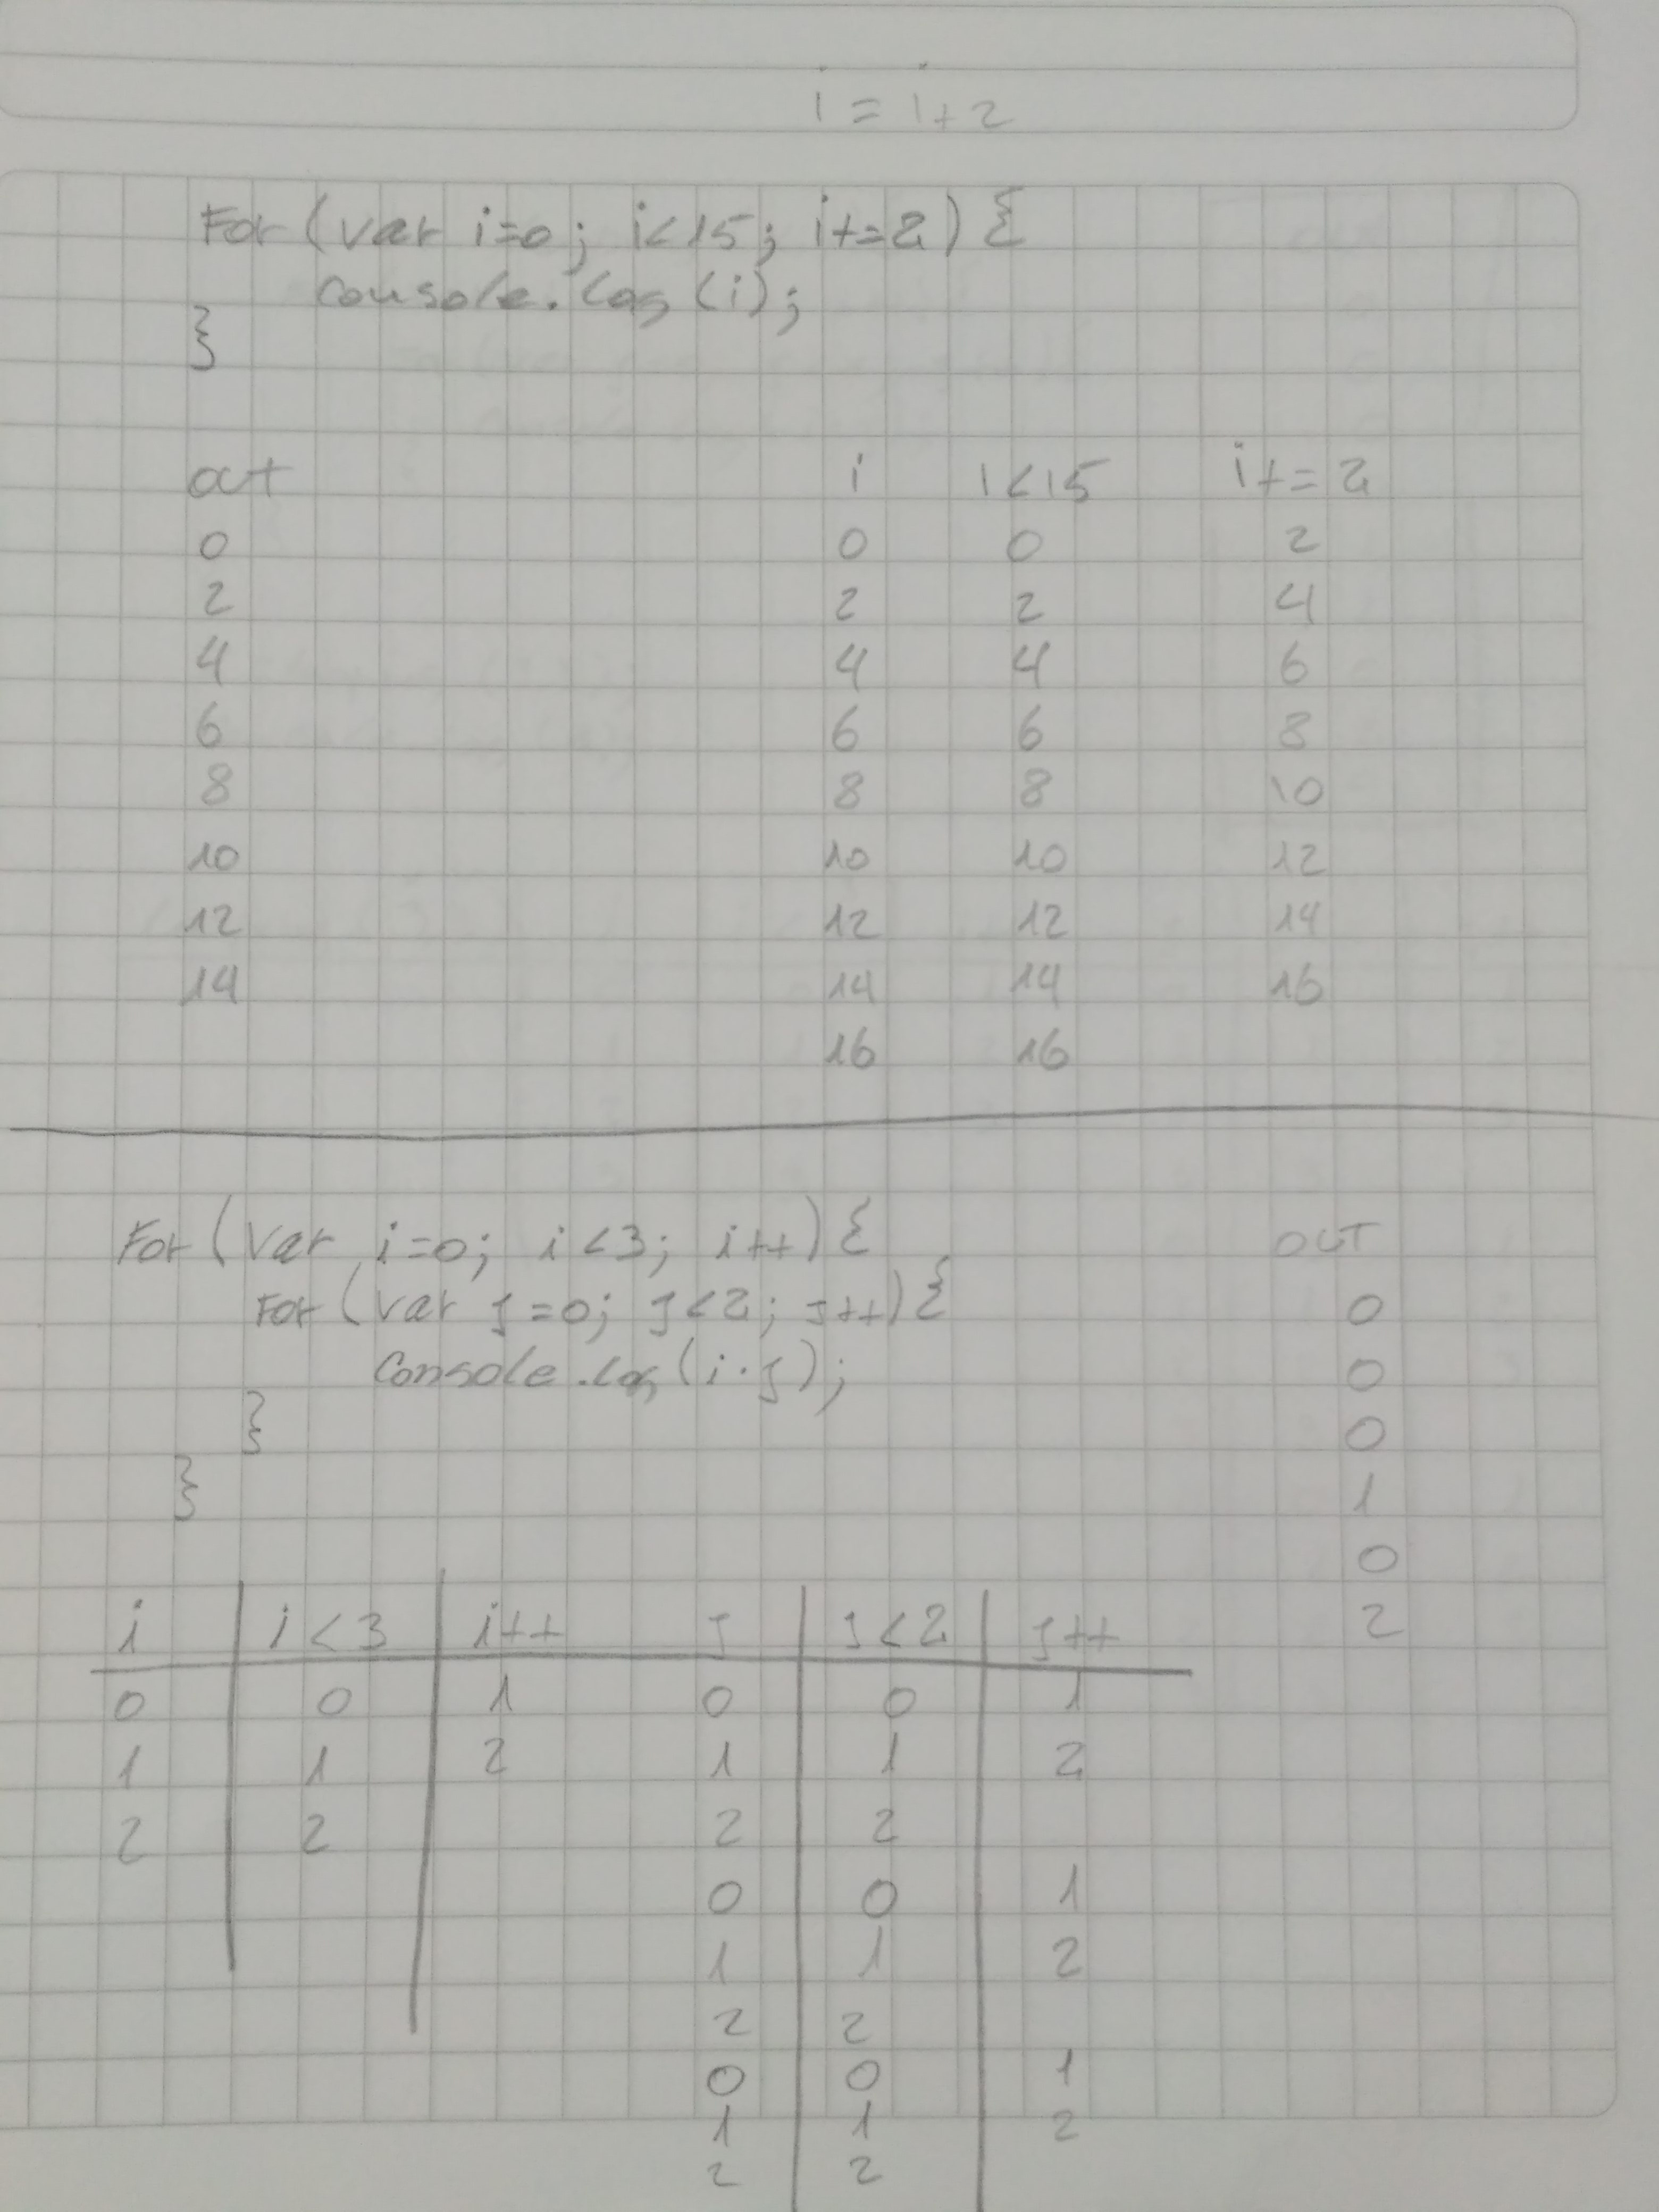 i = i+2
For (var i=0; i<15; i+=2) {
console.log (i);
}
out i i<15 i+=2
0 0 0 2
2 2 2 4
4 4 4 6
6 6 6 8
8 8 8 10
10 10 10 12
12 12 12 14
14 14 14 16
16 16
For (var i=0; i<3; i++) { out
For (var j=0; j<2; j++) { 0
Console.log (i·j); 0
} 0
} 1
0
i i<3 i++ j j<2 j++ 2
0 0 1 0 0 1
1 1 2 1 1 2
2 2 2 2
0 0 1
1 1 2
2 2
0 0 1
1 1 2
2 2